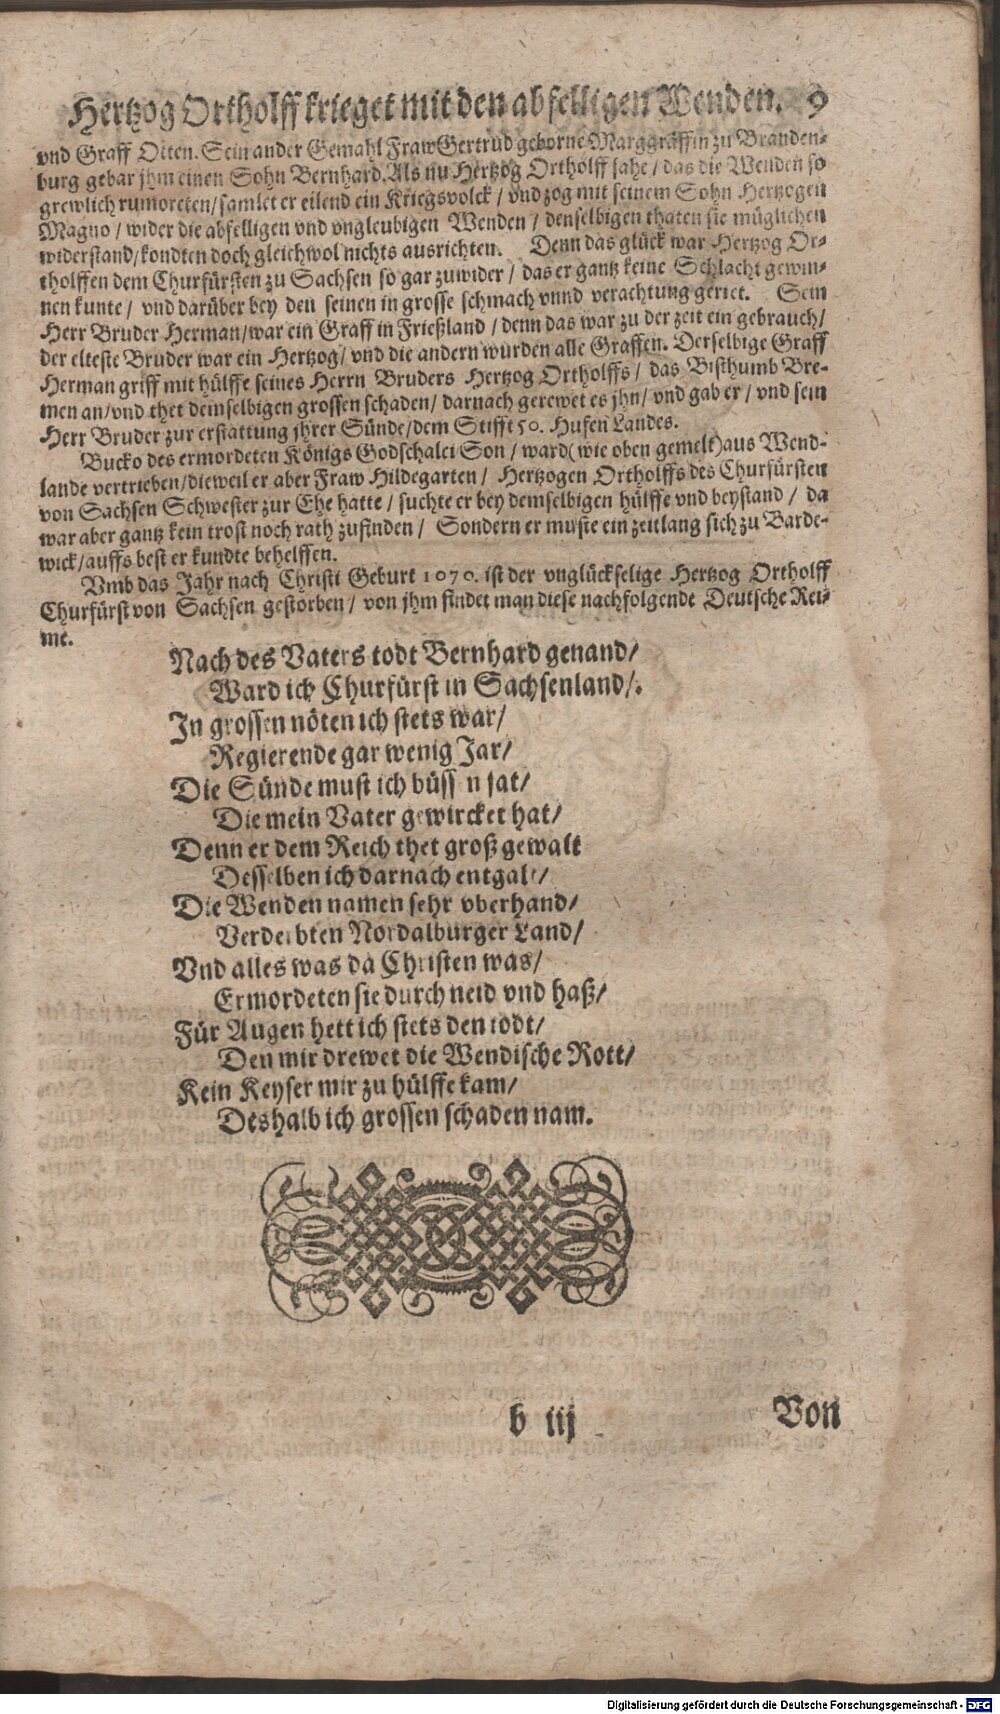 Hertzog Ortholff krieget mit den abfelligen Wenden. 9
vnd Graff Otten. Sein ander Gemahl Fraw Gertrud geborne Marggräffin zu Branden-
burg gebar jhm einen Sohn Bernhard. Als nu Hertzog Ortholff sahe / das die Wenden so
grewlich rumoreten / samlet er eilend ein Kriegsvolck / vnd zog mit seinem Sohn Hertzogen
Magno / wider die abfelligen vnd vngleubigen Wenden / denselbigen thaten sie müglichen
widerstand / kondten doch gleichwol nichts ausrichten. Denn das glück war Hertzog Or-
tholffen dem Churfürsten zu Sachsen so gar zuwider / das er gantz keine Schlacht gewin-
nen kunte / vnd darüber bey den seinen in grosse schmach vnnd verachtung geriet. Sein
Herr Bruder Herman / war ein Graff in Frießland / denn das war zu der zeit ein gebrauch /
der elteste Bruder war ein Hertzog / vnd die andern wurden alle Graffen. Derselbige Graff
Herman griff mit hülffe seines Herrn Bruders Hertzog Ortholffs / das Bisthumb Bre-
men an / vnd thet demselbigen grossen schaden / darnach gerewet es jhn / vnd gab er / vnd sein
Herr Bruder zur erstattung jhrer Sünde / dem Stifft 50. Hufen Landes.
Bucko des ermordeten Königs Godschalci Son / ward (wie oben gemelt) aus Wend-
lande vertrieben / dieweil er aber Fraw Hildegarten / Hertzogen Ortholffs des Churfürsten
von Sachsen Schwester zur Ehe hatte / suchte er bey demselbigen hülffe vnd beystand / da
war aber gantz kein trost noch rath zufinden / Sondern er muste ein zeitlang sich zu Barde-
wick / auffs best er kundte behelffen.
Vmb das Jahr nach Christi Geburt 1070. ist der vnglückselige Hertzog Ortholff
Churfürst von Sachsen gestorben / von jhm findet man diese nachfolgende Deutsche Rei-
me.
Nach des Vaters todt Bernhard genand /
Ward ich Churfürst in Sachsenland /.
In grossen nöten ich stets war /
Regierende gar wenig Jar /
Die Sünde must ich büssen jat /
Die mein Vater gewircket hat /
Denn er dem Reich thet groß gewalt
Desselben ich darnach entgalt /
Die Wenden namen sehr vberhand /
Verderbten Nordalburger Land /
Vnd alles was da Christen was /
Ermordeten sie durch neid vnd haß /
Für Augen hett ich stets den todt /
Den mir drewet die Wendische Rott /
Kein Keyser mir zu hülffe kam /
Deshalb ich grossen schaden nam.
b iij
Von
Digitalisierung gefördert durch die Deutsche Forschungsgemeinschaft - DFG